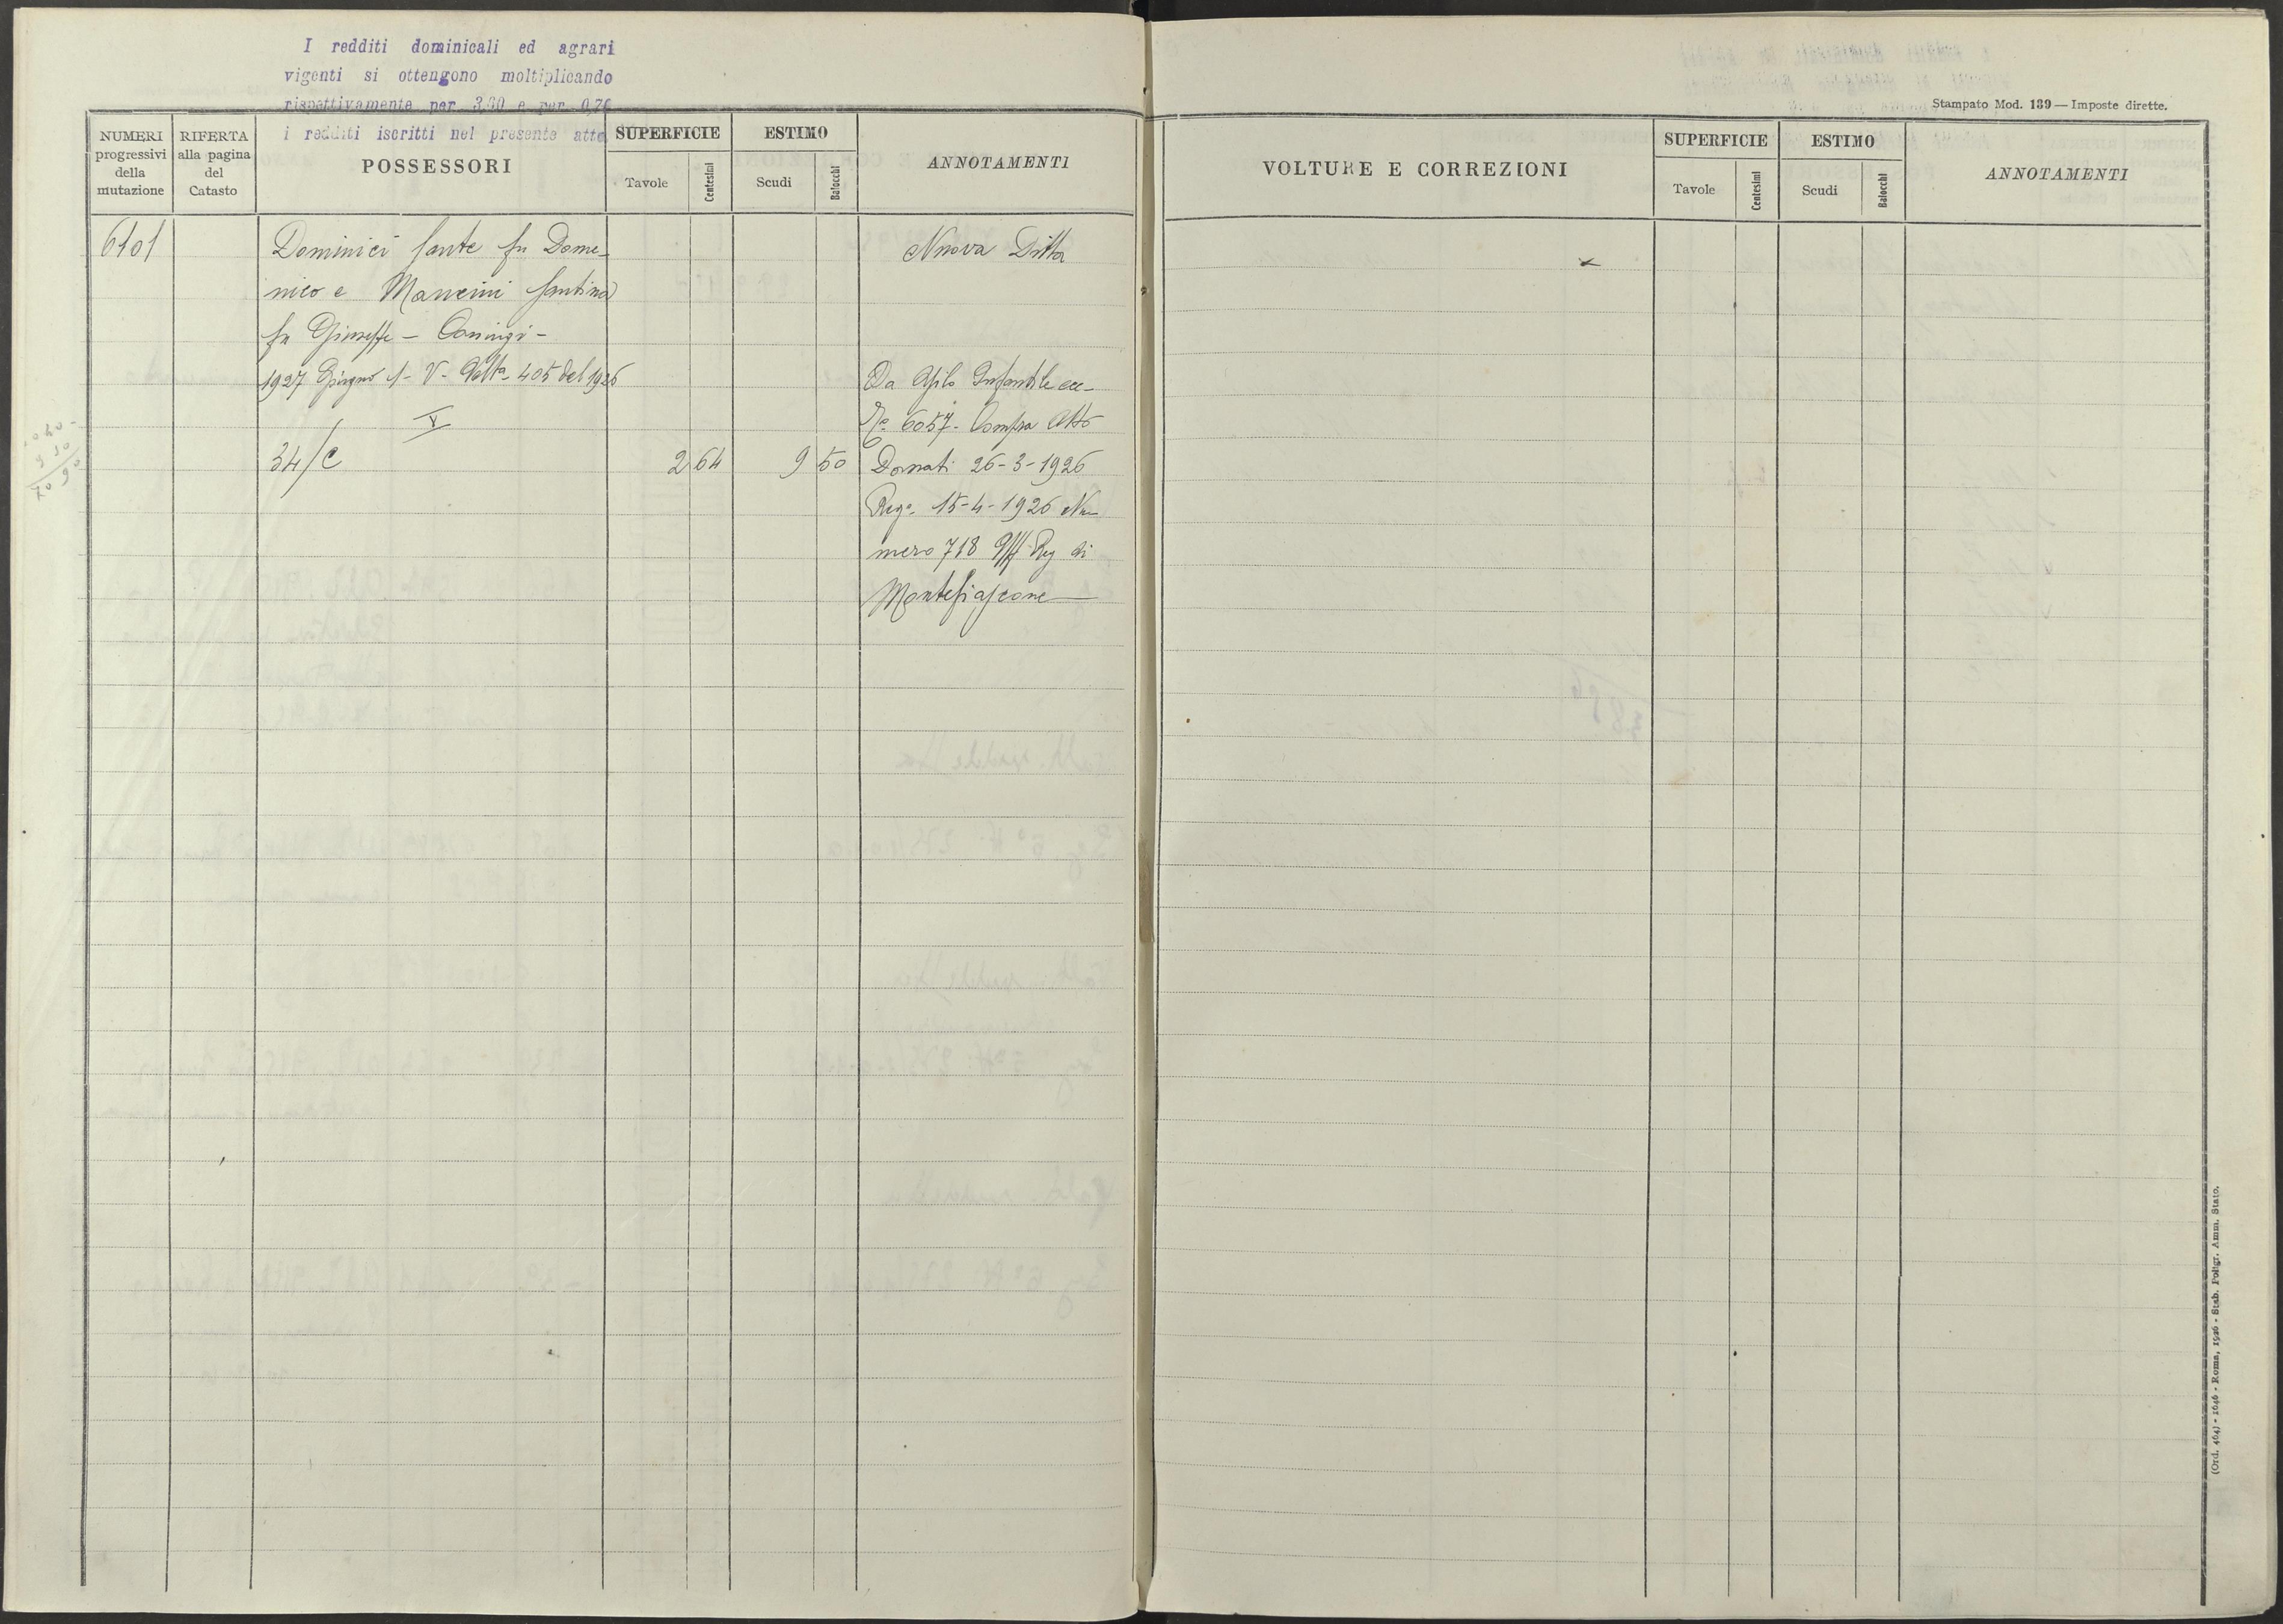 I redditi dominicali ed agrari
vigenti si ottengono moltiplicando
rispettivamente per 3,60 e per 0,76
i redditi iscritti nel presente atto
Stampato Mod. 139 — Imposte dirette.
NUMERI progressivi della mutazione
RIFERTA alla pagina del Catasto
POSSESSORI
SUPERFICIE
Tavole
Centesimi
ESTIMO
Scudi
Baiocchi
ANNOTAMENTI
VOLTURE E CORREZIONI
SUPERFICIE
Tavole
Centesimi
ESTIMO
Scudi
Baiocchi
ANNOTAMENTI
6101
Dominici Sante fu Dome-
nico e Mancini Santina
fu Giuseppe - Coniugi -
1927 Giugno 1 - V- 405 del 1926
V
34/C 2 64 9 50
Nuova Ditta
Da Asilo Infantile ecc-
6057 - Compra Atto
Donati 26-3-1926
Reg. 15-4-1926 Nu-
mero 718 Uff. Reg di
Montefiascone
(Ord. 464) - 1646 - Roma, 1926 - Stab. Poligr. Amm. Stato.